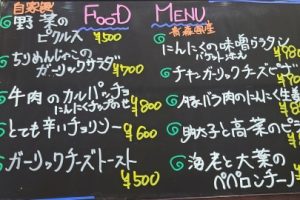 自家製
FOOD MENU
野菜の
ピクルス ¥500
ちりめんじゃこの
ガーリックサラダ ¥700
牛肉のカルパッチョ
にんにくチップのせ ¥800
とても辛いチョリソー ¥600
ガーリックチーズトースト
¥500
青森国産
にんにくの味噌グラタン
バゲット添え
チキンガーリックチーズピザ
豚バラ肉のにんにく生姜
明太子と高菜のピ
海老と大葉の
ペペロンチーノ